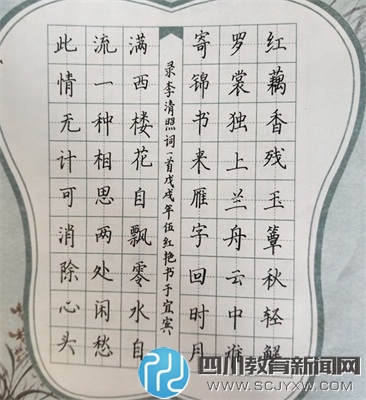 红藕香残玉簟秋轻解
罗裳独上兰舟云中谁
寄锦书来雁字回时月
录李清照词一首戊戌年伍红艳书于宜宾
满西楼花自飘零水自
流一种相思两处闲愁
此情无计可消除心头
四川教育新闻网
WWW.SCJYXW.COM